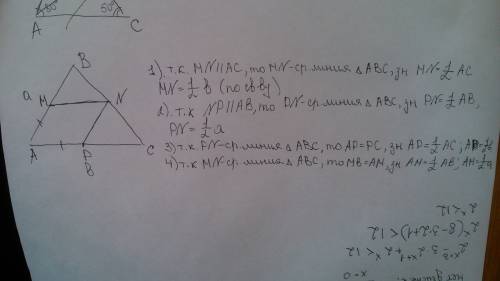 50°
50°
A
C
B
a
M
N
A
P
C
В
1). т.к. MN||AC, то MN-ср. линия ΔABC, зн MN=½AC
MN=½в (по св-ву)
2). т.к NP||AB, то PN-ср. линия ΔABC, зн PN=½AB,
PN=½a
3) т.к. PN-ср. линия ΔABC, то AP=PC, зн AP=½AC, AP=½в
4) т.к MN-ср. линия ΔABC, то MB=AM, зн AM=½AB; AM=½a
x=0
2ˣ⁺³-3·2ˣ⁺¹+2ˣ<12
2ˣ(8-3·2+1)<12
2ˣ<12